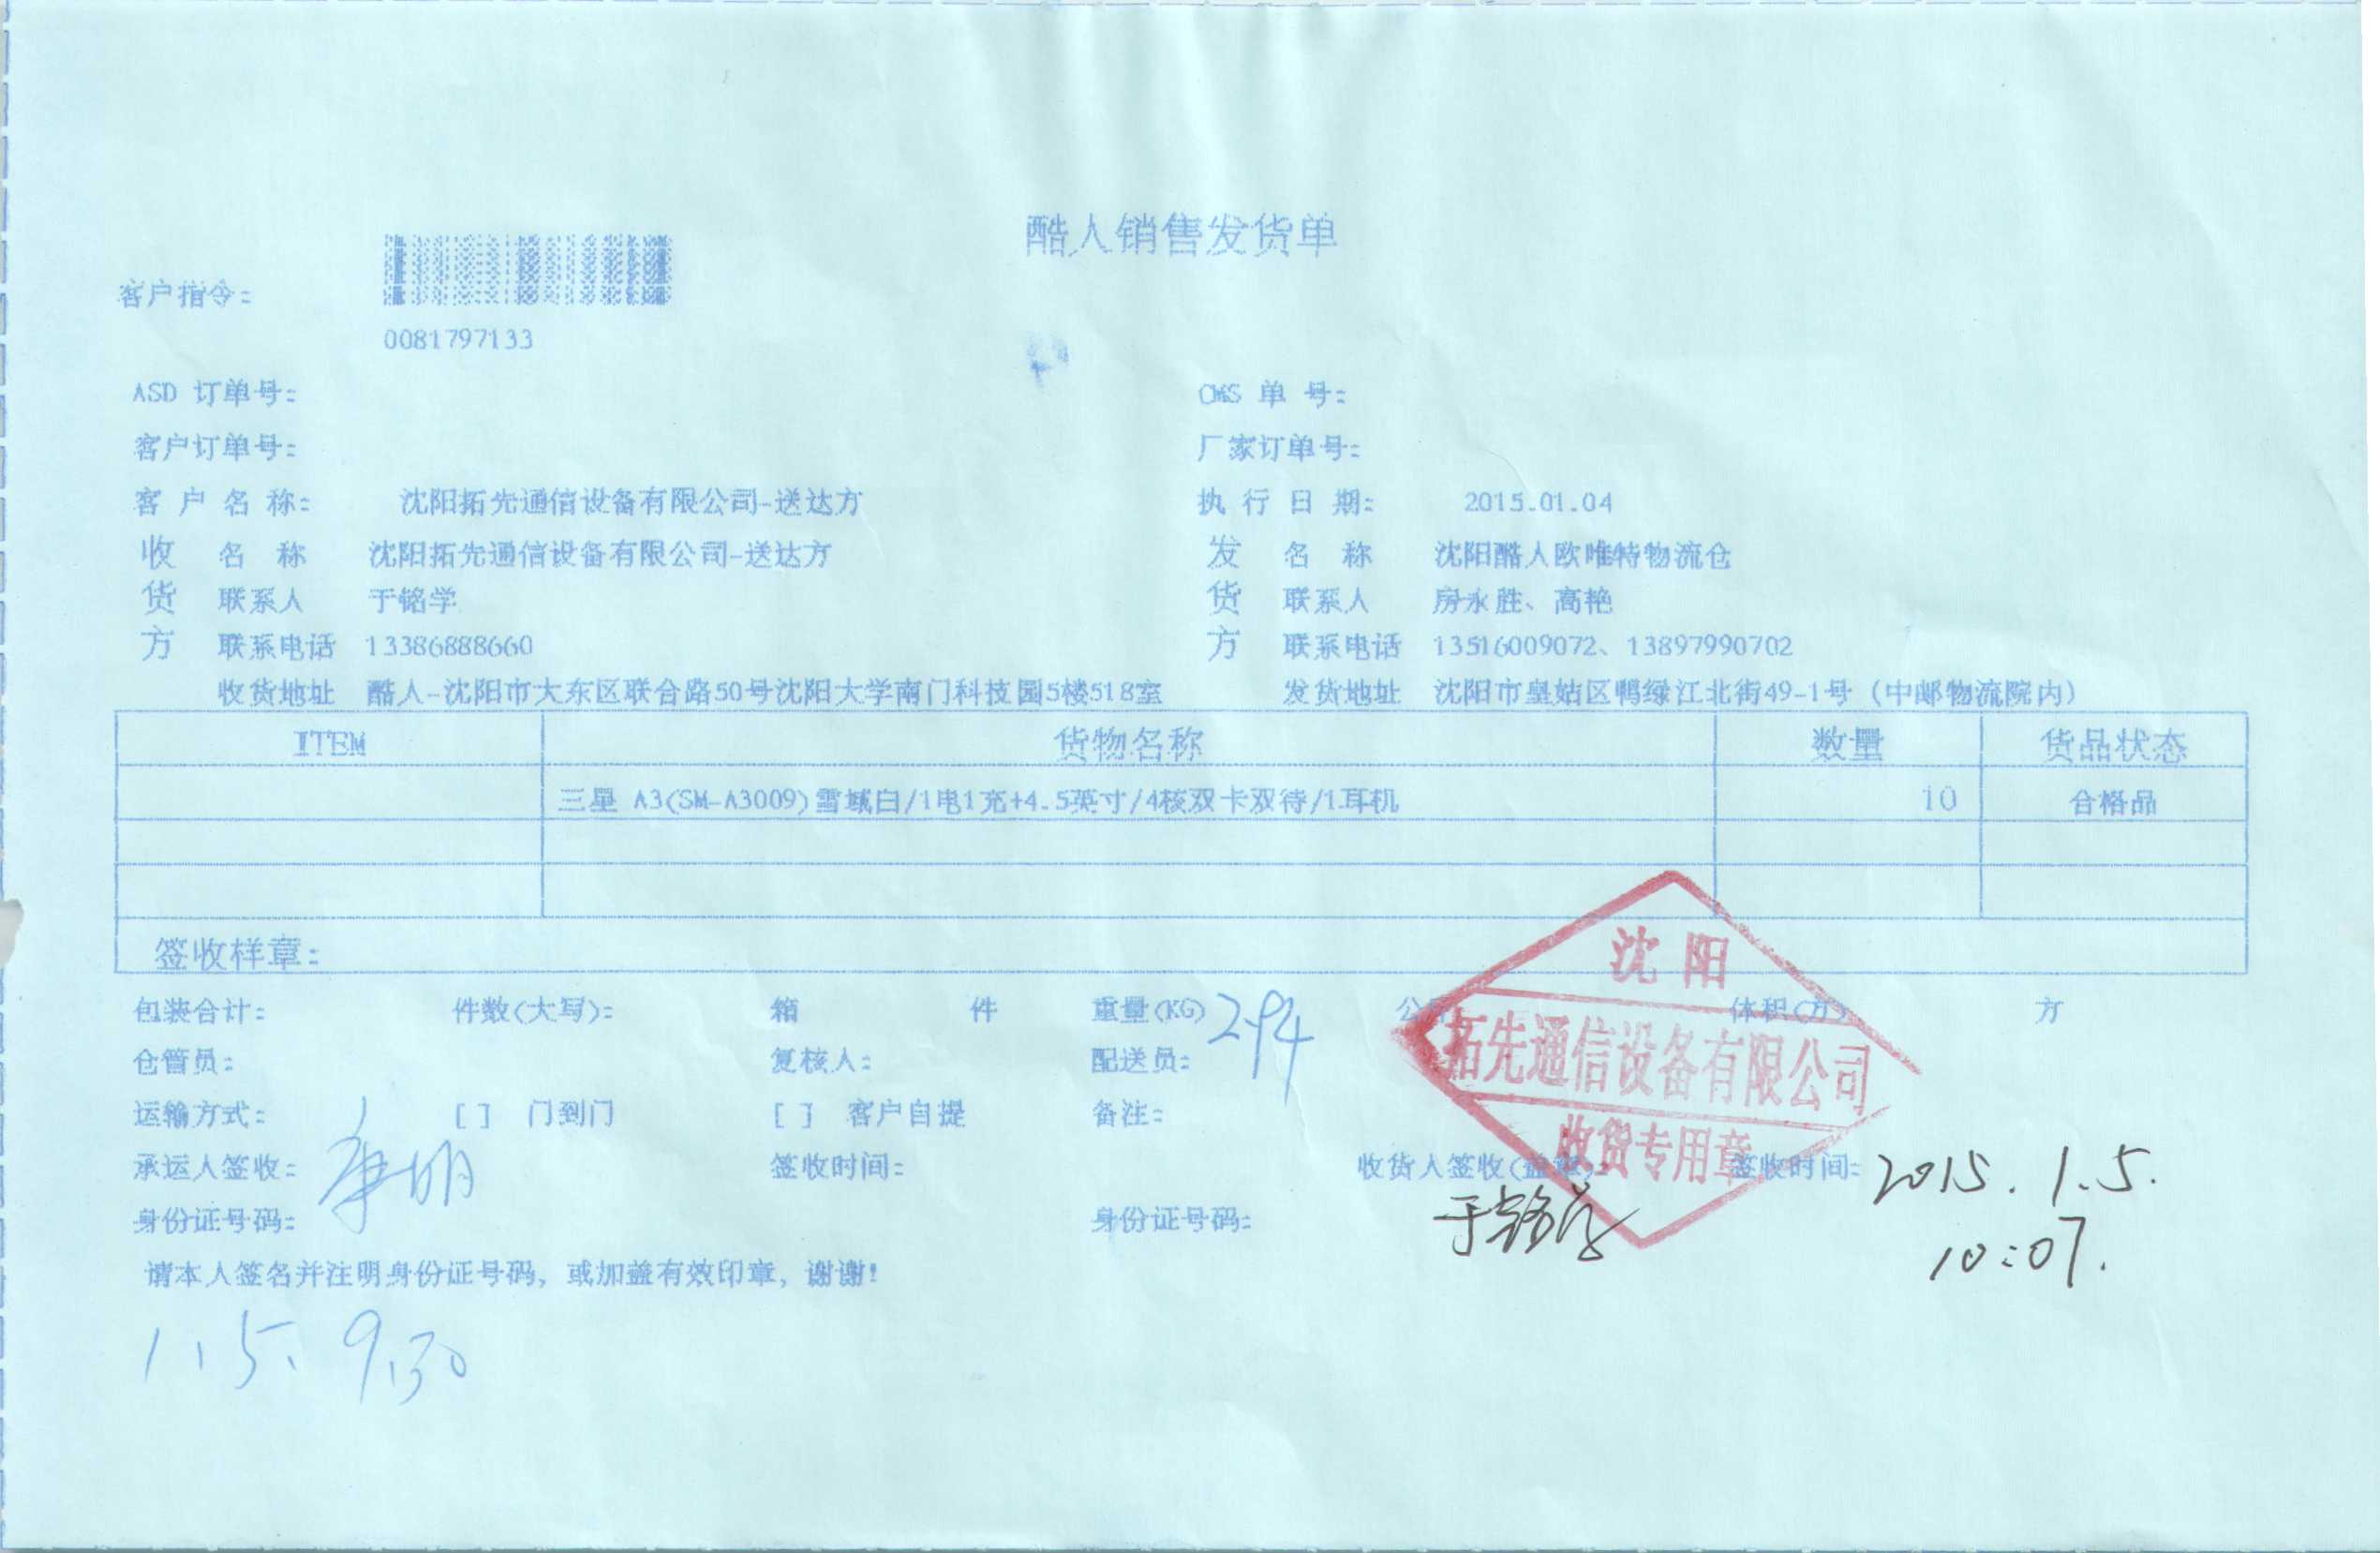 酷人销售发货单
客户指令:
0081797133
ASD 订单号: OMS 单 号:
客户订单号: 厂家订单号:
客 户 名 称: 沈阳拓先通信设备有限公司-送达方 执 行 日 期: 2015.01.04
收 名 称 沈阳拓先通信设备有限公司-送达方 发 名 称 沈阳酷人欧唯特物流仓
货 联系人 于铭学 货 联系人 房永胜、高艳
方 联系电话 13386888660 方 联系电话 13516009072、13897990702
收货地址 酷人-沈阳市大东区联合路50号沈阳大学南门科技园5楼518室 发货地址 沈阳市皇姑区鸭绿江北街49-1号 (中邮物流院内)
ITEM 货物名称 数量 货品状态
三星 A3(SM-A3009)雪域白/1电1充+4.5英寸/4核双卡双待/1耳机 10 合格品
签收样章:
沈阳
拓先通信设备有限公司
收货专用章
包装合计: 件数(大写): 箱 件 重量(KG) 2.94 公斤 体积(方) 方
仓管员: 复核人: 配送员:
运输方式: [ ] 门到门 [ ] 客户自提 备注:
承运人签收: 签收时间: 收货人签收(盖章): 于铭学 签收时间: 2015.1.5.
10:07.
身份证号码: 身份证号码:
请本人签名并注明身份证号码, 或加盖有效印章, 谢谢!
1.5. 9.30